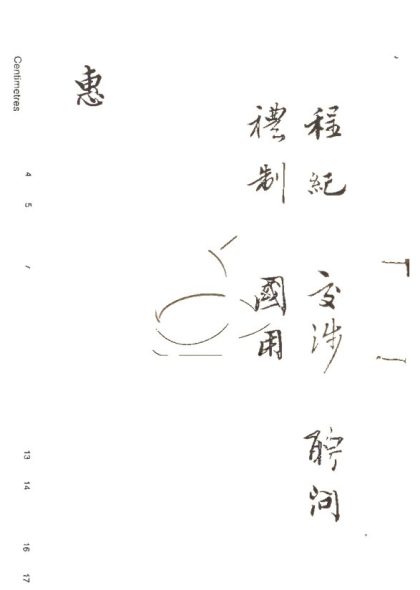 程紀 交涉 聘問
禮制 國用
惠
Centimetres
4 5 13 14 16 17